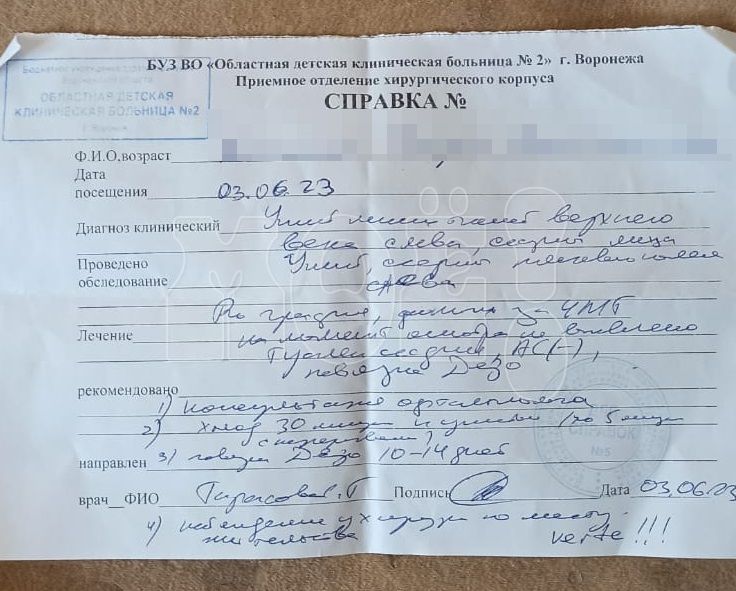 БУЗ ВО «Областная детская клиническая больница № 2» г. Воронежа
Приемное отделение хирургического корпуса
СПРАВКА №
ОБЛАСТНАЯ ДЕТСКАЯ
КЛИНИЧЕСКАЯ БОЛЬНИЦА №2
Ф.И.О.возраст
Дата
посещения 03.06.23
Диагноз клинический Ушиб мягких тканей верхнего
века слева, ссадины лица
Проведено Ушиб, ссадины плечевого
обследование слева
Rо графия, данных за ЧМТ
Лечение на момент осмотра не выявлено
Туалет ссадин, АС(-),
повязка Дезо
рекомендовано
1) консультация офтальмолога
2) холод 30 минут по 5 минут
с перерывами
направлен 3) повязка Дезо 10-14 дней
СПРАВОК
№5
врач ФИО Подпись Дата 03.06.23
4) наблюдение у хирурга по месту
жительства verte!!!